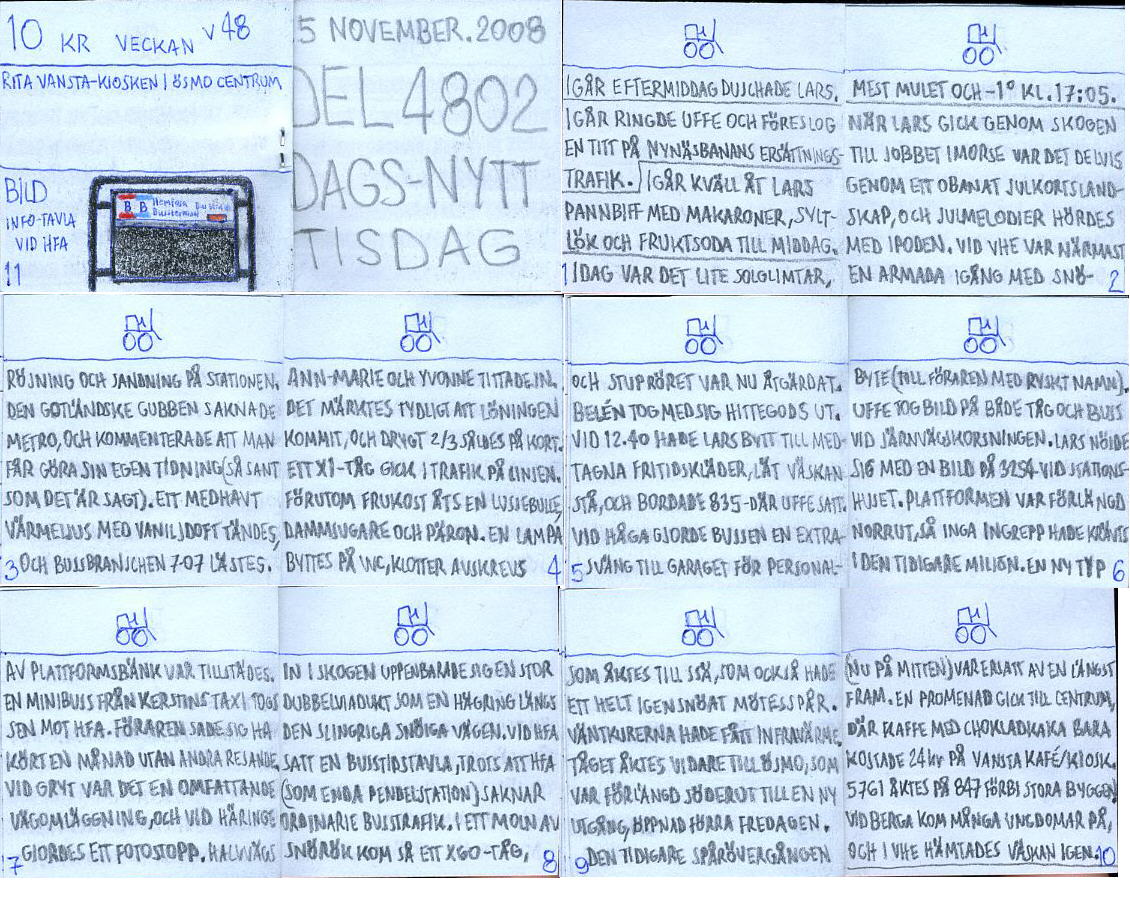 10 KR VECKAN V48
RITA VANSTA-KIOSKEN I ÖSMO CENTRUM
BILD
INFO-TAVLA
VID HFA
11
B B Hemfosa
Bussterminal
5 NOVEMBER.2008
DEL 4802
DAGS-NYTT
TISDAG
IGÅR EFTERMIDDAG DUSCHADE LARS.
IGÅR RINGDE UFFE OCH FÖRESLOG
EN TITT PÅ NYNÄSBANANS ERSÄTTNINGS-
TRAFIK. IGÅR KVÄLL ÅT LARS
PANNBIFF MED MAKARONER, SYLT-
LÖK OCH FRUKTSODA TILL MIDDAG.
1 IDAG VAR DET LITE SOLGLIMTAR,
MEST MULET OCH -1° KL.17:05.
NÄR LARS GICK GENOM SKOGEN
TILL JOBBET IMORSE VAR DET DELVIS
GENOM ETT OBANAT JULKORTSLAND-
SKAP, OCH JULMELODIER HÖRDES
MED IPODEN. VID VHE VAR NÄRMAST
EN ARMADA IGÅNG MED SNÖ- 2
RÖJNING OCH SANDNING PÅ STATIONEN.
DEN GOTLÄNDSKE GUBBEN SAKNADE
METRO, OCH KOMMENTERADE ATT MAN
FÅR GÖRA SIN EGEN TIDNING (SÅ SANT
SOM DET ÄR SAGT). ETT MEDHAVT
VÄRMELJUS MED VANILJDOFT TÄNDES,
3 OCH BUSSBRANSCHEN 7-07 LÄSTES.
ANN-MARIE OCH YVONNE TITTADE IN.
DET MÄRKTES TYDLIGT ATT LÖNINGEN
KOMMIT, OCH DRYGT 2/3 SÅLDES PÅ KORT.
ETT X1-TÅG GICK I TRAFIK PÅ LINJEN.
FÖRUTOM FRUKOST ÅTS EN LUSSEBULLE,
DAMMSUGARE OCH PÄRON. EN LAMPA
BYTTES PÅ WC, KLOTTER AVSKREVS 4
OCH STUPRÖRET VAR NU ÅTGÄRDAT.
BELÉN TOG MED SIG HITTEGODS UT.
VID 12.40 HADE LARS BYTT TILL MED-
TAGNA FRITIDSKLÄDER, LÄT VÄSKAN
STÅ, OCH BORDADE 835-DÄR UFFE SATT.
VID HÅGA GJORDE BUSSEN EN EXTRA-
5 SVÄNG TILL GARAGET FÖR PERSONAL-
BYTE (TILL FÖRAREN MED RYSKT NAMN).
UFFE TOG BILD PÅ BÅDE TÅG OCH BUSS
VID JÄRNVÄGSKORSNINGEN. LARS NÖJDE
SIG MED EN BILD PÅ 3254 VID STATIONS-
HUSET. PLATTFORMEN VAR FÖRLÄNGD
NORRUT, SÅ INGA INGREPP HADE KRÄVTS
I DEN TIDIGARE MILJÖN. EN NY TYP 6
AV PLATTFORMSBÄNK VAR TILLSTÄDES.
EN MINIBUSS FRÅN KERSTINS TAXI TOGS
SEN MOT HFA. FÖRAREN SADE SIG HA
KÖRT EN MÅNAD UTAN ANDRA RESANDE.
VID GRYT VAR DET EN OMFATTANDE
VÄGOMLÄGGNING, OCH VID HÄRINGE
7 GJORDES ETT FOTOSTOPP. HALVVÄGS
IN I SKOGEN UPPENBARADE SIG EN STOR
DUBBELVIADUKT SOM EN HÄGRING LÄNGS
DEN SLINGRIGA SNÖIGA VÄGEN. VID HFA
SATT EN BUSSTIDSTAVLA, TROTS ATT HFA
(SOM ENDA PENDELSTATION) SAKNAR
ORDINARIE BUSSTRAFIK. I ETT MOLN AV
SNÖRÖK KOM SÅ ETT X60-TÅG, 8
SOM ÅKTES TILL SSÄ, SOM OCKSÅ HADE
ETT HELT IGENSNÖAT MÖTESSPÅR.
VÄNTKURERNA HADE FÅTT INFRAVÄRME.
TÅGET ÅKTES VIDARE TILL ÖSMO, SOM
VAR FÖRLÄNGD SÖDERUT TILL EN NY
UTGÅNG, ÖPPNAD FÖRRA FREDAGEN.
9 DEN TIDIGARE SPÅRÖVERGÅNGEN
(NU PÅ MITTEN) VAR ERSATT AV EN LÄNGST
FRAM. EN PROMENAD GICK TILL CENTRUM,
DÄR KAFFE MED CHOKLADKAKA BARA
KOSTADE 24kr PÅ VANSTA KAFÉ/KIOSK.
5761 ÅKTES PÅ 847 FÖRBI STORA BYGGEN,
VID BERGA KOM MÅNGA UNGDOMAR PÅ,
OCH I VHE HÄMTADES VÄSKAN IGEN. 10